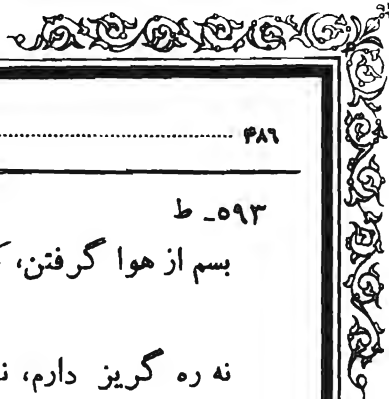 ۴۸۶
۵۹۳ـ ط
بسم از هوا گرفتن،
نه ره گریز دارم،